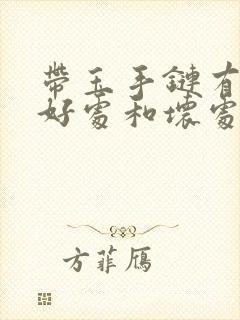 帶玉手鏈有
好處和壞處
方菲雁